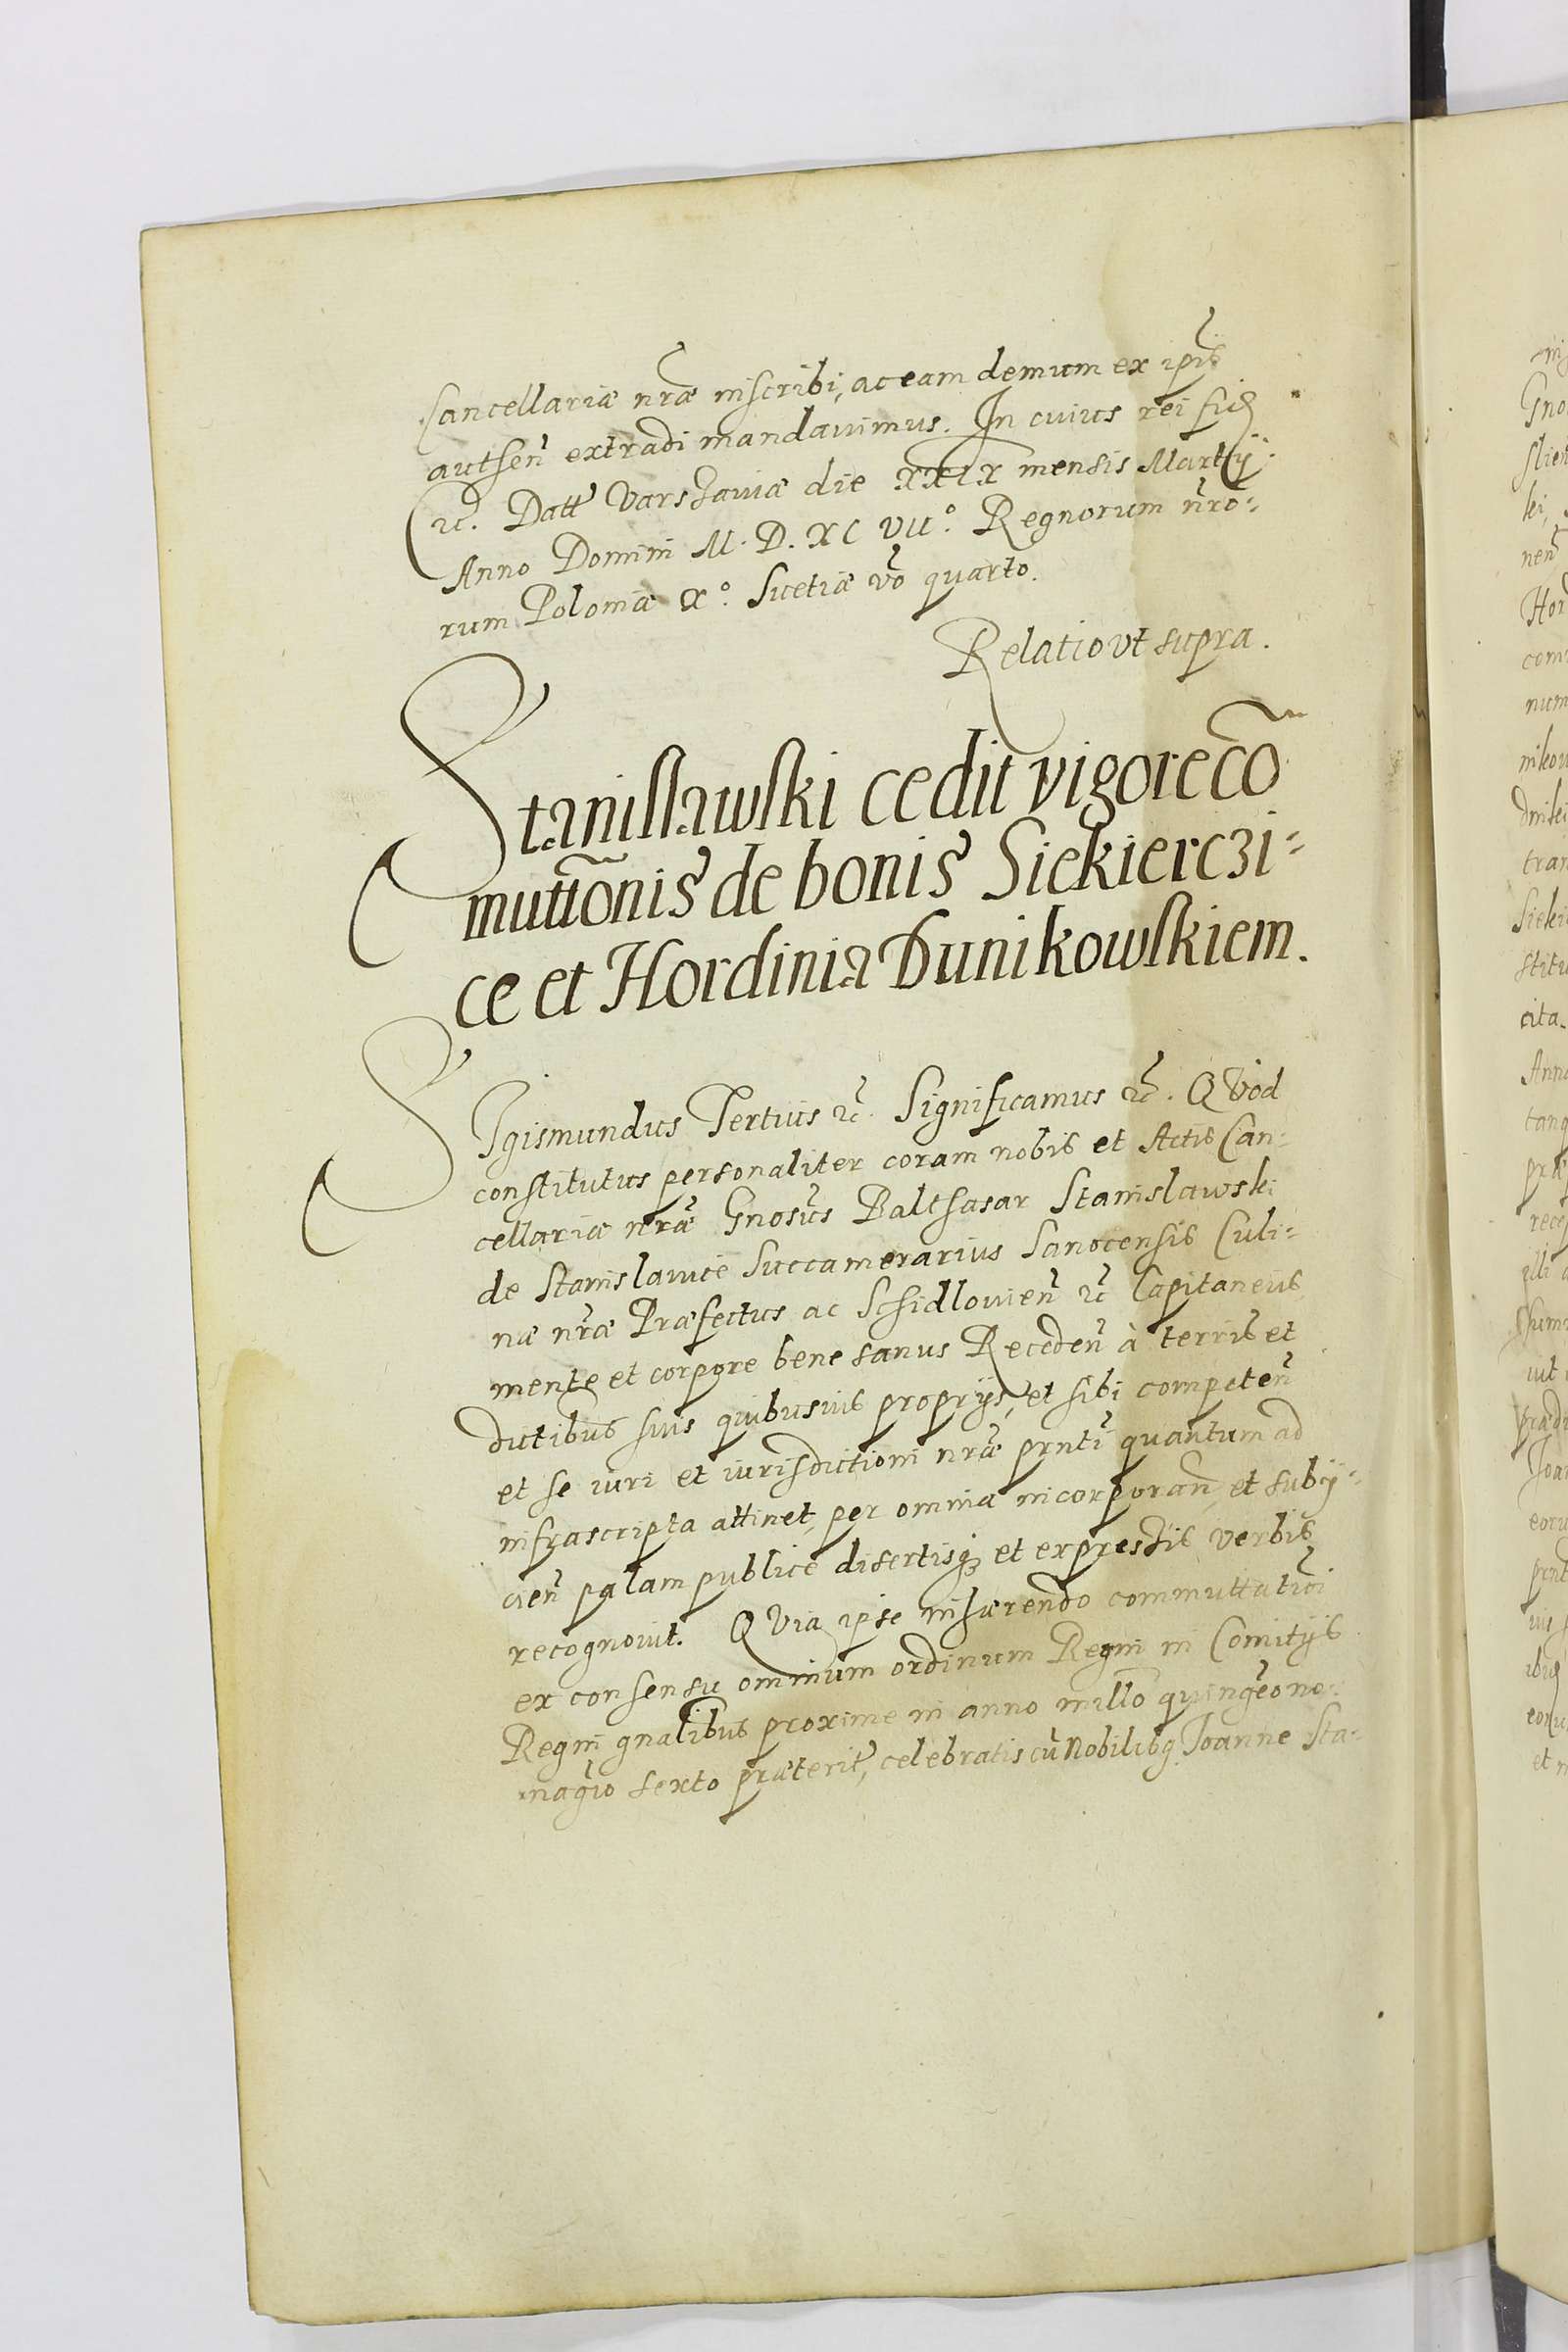 Cancellariæ nrã inscribi, ac eam demum ex ipis
authen̄ extradi mandauimus. In cuius rei fid
etc. Datt Varshauiæ die XXIX mensis Martij
Anno Domini M. D. XC VII°. Regnorum nrõ-
rum Poloniæ X°. Suetiæ võ quarto.
Relatio vt supra.
Stanislawski cedit vigore cõ
muttõnis de bonis Siekierczi-
ce et Hordinia Dunikowskiem.
SIgismundus Tertius etc. Significamus etc. QVod
constitutus personaliter coram nobis et Actis Can-
cellariæ nrã Gnosus Balthasar Stanislawski
de Stanislauice Succamerarius Sanocensis Culi-
næ nrã Præfectus ac Schidlouien̄ etc Capitaneus
mente et corpore bene sanus Receden̄ à terris et
dictibus suis quibusuis proprijs, et sibi competen̄
et se iuri et iurisdictioni nrã prnti quantum ad
infrascripta attinet, per omnia incorporan̄ et subij-
cien̄ palam publice disertisq3 et expressis verbis
recognouit. QVia ipse inhærendo commuttatiõi
ex consensu omnium ordinum Regni in Comitijs
Regni gnalibus proxime in anno millõ quingẽo no-
nagio sexto præterit, celebratis cũ Nobilibq Joanne Sta-